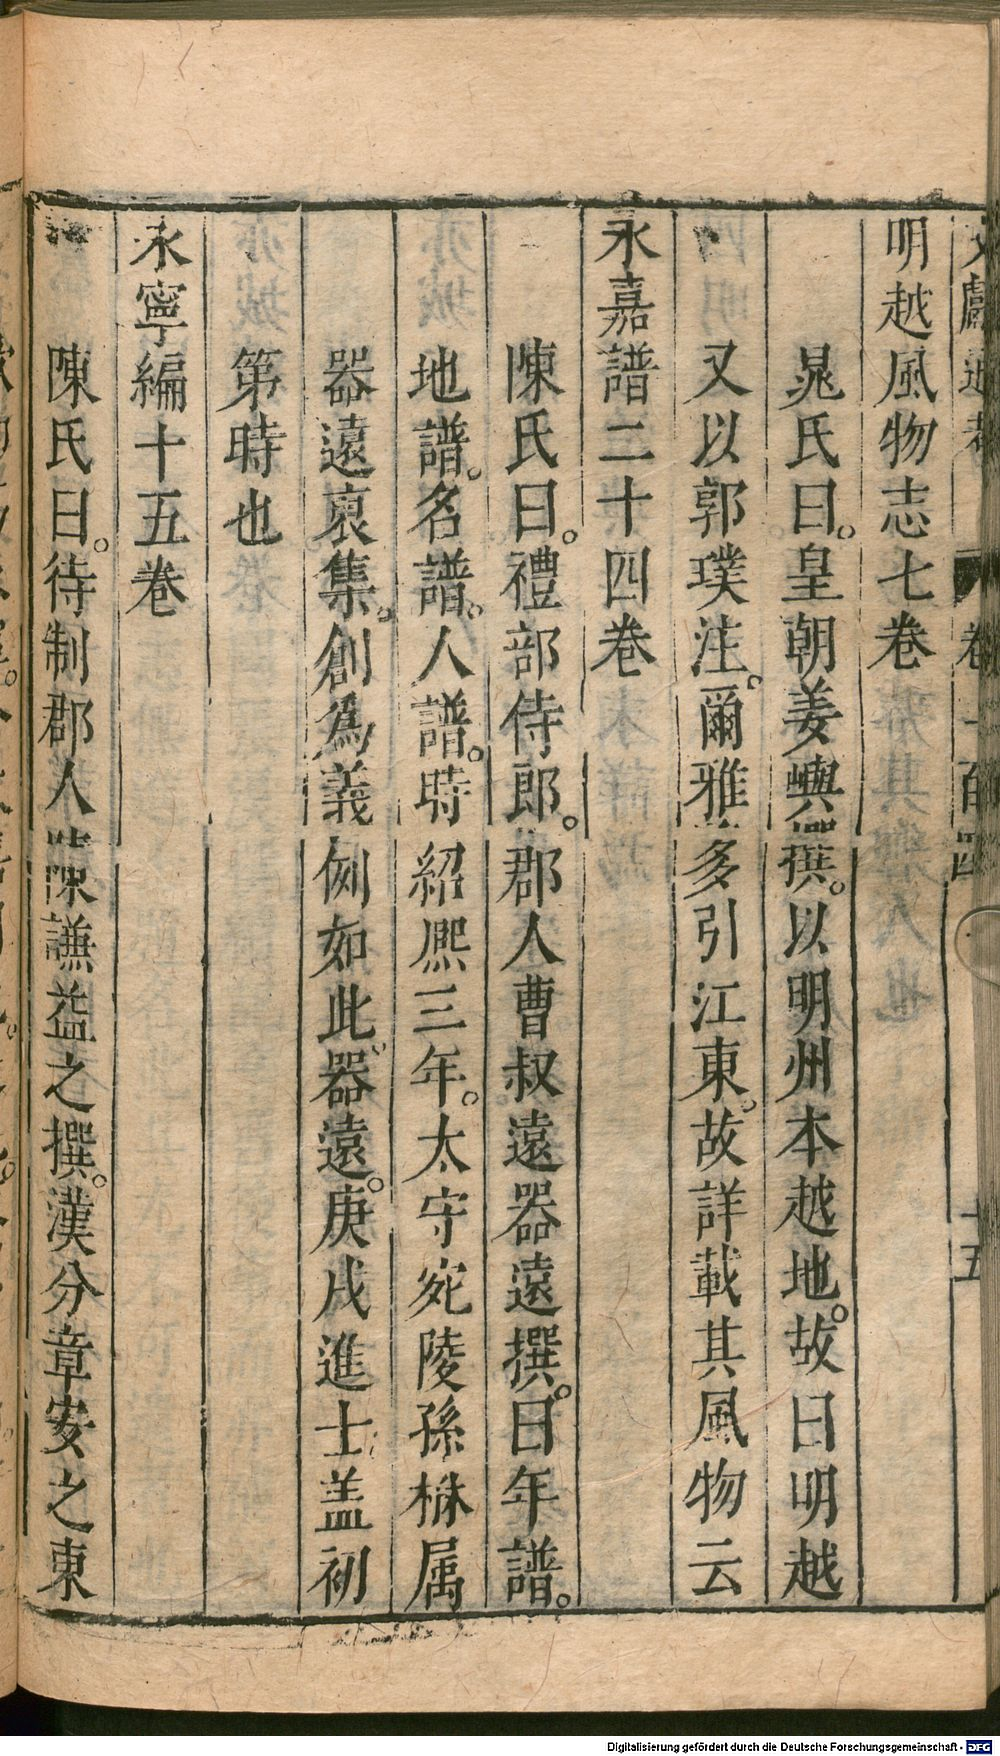 文獻通考 卷二百四 十五
明越風物志七卷
晁氏曰。皇朝姜嶼撰。以明州本越地。故曰明越
又以郭璞注。爾雅多引江東。故詳載其風物云
永嘉譜二十四卷
陳氏曰。禮部侍郎。郡人曹叔遠器遠撰。曰年譜。
地譜。名譜。人譜。時紹熙三年。太守宛陵孫楙属
器遠裒集。創爲義例如此。器遠。庚戌進士盖初
第時也
永寧編十五巻
陳氏曰。待制郡人陳謙益之撰。漢分章安之東
Digitalisierung gefördert durch die Deutsche Forschungsgemeinschaft - DFG